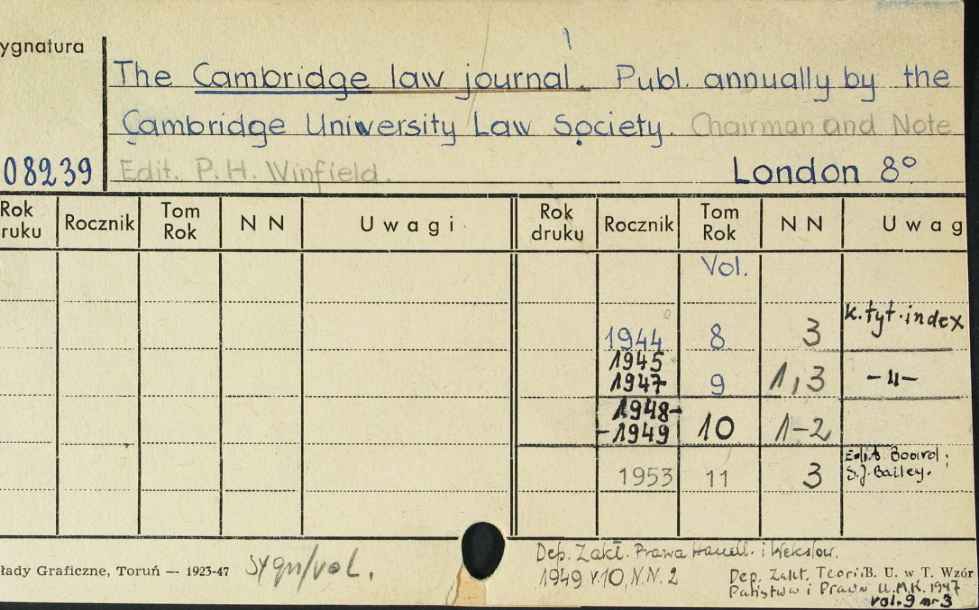 ygnatura
The Cambridge law journal. Publ. annually by the
Cambridge University Law Society. Chairman and Note
08239 Edit. P. H. Winfield. London 8°
Rok ruku Rocznik Tom Rok N N Uwagi Rok druku Rocznik Tom Rok N N Uwag
Vol.
1944 8 3 k. tyt. index
1945 1947 9 1,3 -"-
1948- -1949 10 1-2
1953 11 3 Edit. Board: S.J. Bailey.
łady Graficzne, Toruń — 1923-47 sygn/vol.
Dep. Zakł. Prawa Handl. i Weksłow.
1949 v. 10, N.N. 2
Dep. Zakł. Teorii B. U. w T. Wzór
Państwa i Prawa U.M.K. 1947
vol. 9 nr 3